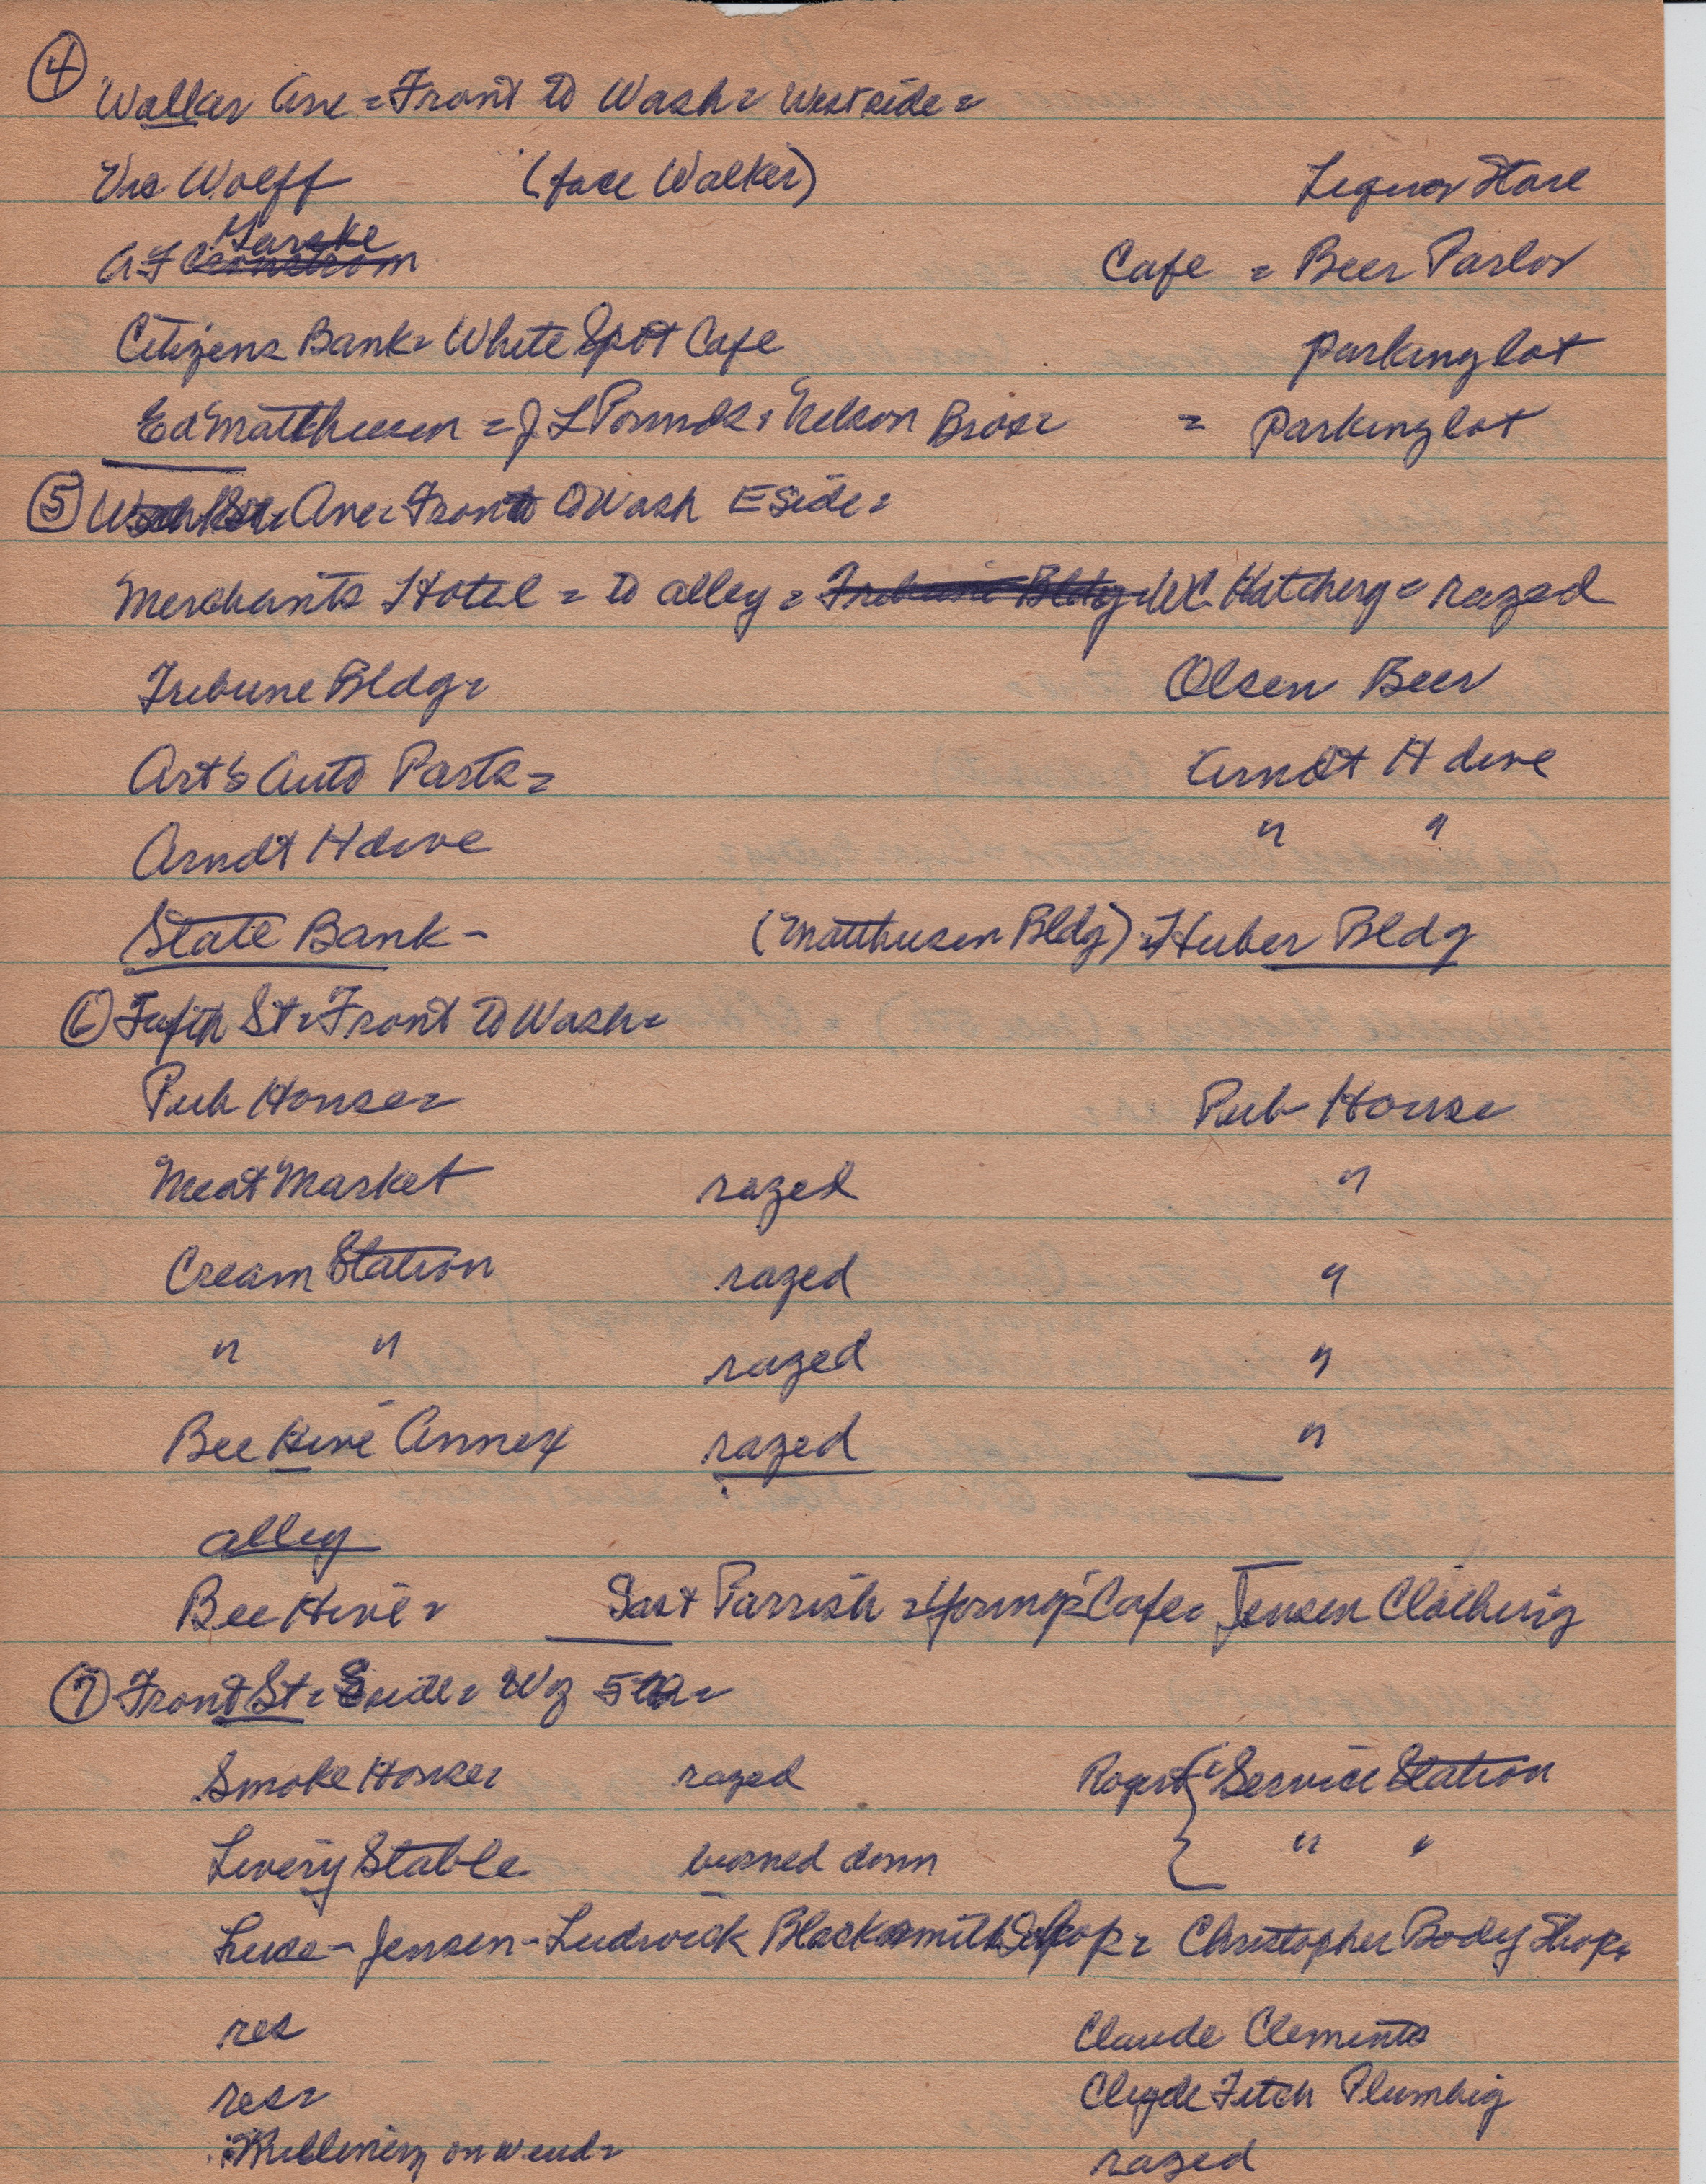 4
Walker Ave = Front to Wash = West side =
Wolff (face Walker) Liquor Store
A F Cafe = Beer Parlor
Citizens Bank = White Spot Cafe parking lot
Ed Matthiesen = J L Pounds, Nelson Bros = = parking lot
5 Ave = Front to Wash E Side =
Merchants Hotel = to alley = Tribune Bldg = Hatchery = razed
Tribune Bldg = Olsen Beer
Art's Auto Parts = Arndt Hdwe
Arndt Hdwe " "
State Bank - (Matthiesen Bldg) = Huber Bldg
6 Fifth St = Front to Wash =
Pub House = Pub House
Meat Market razed "
Cream Station razed "
" " razed "
Bee Hive Annex razed "
alley
Bee Hive = Parrish = Young's Cafe = Jensen Clothing
7 Front St = S side = W of 5th =
Smoke House = razed Service Station
Livery Stable burned down " "
Luse - Jensen - Ludwick Blacksmith Shop = Christopher Body Shop =
res Claude Clements
res = Clyde Fitch Plumbig
Millinery on W end = razed